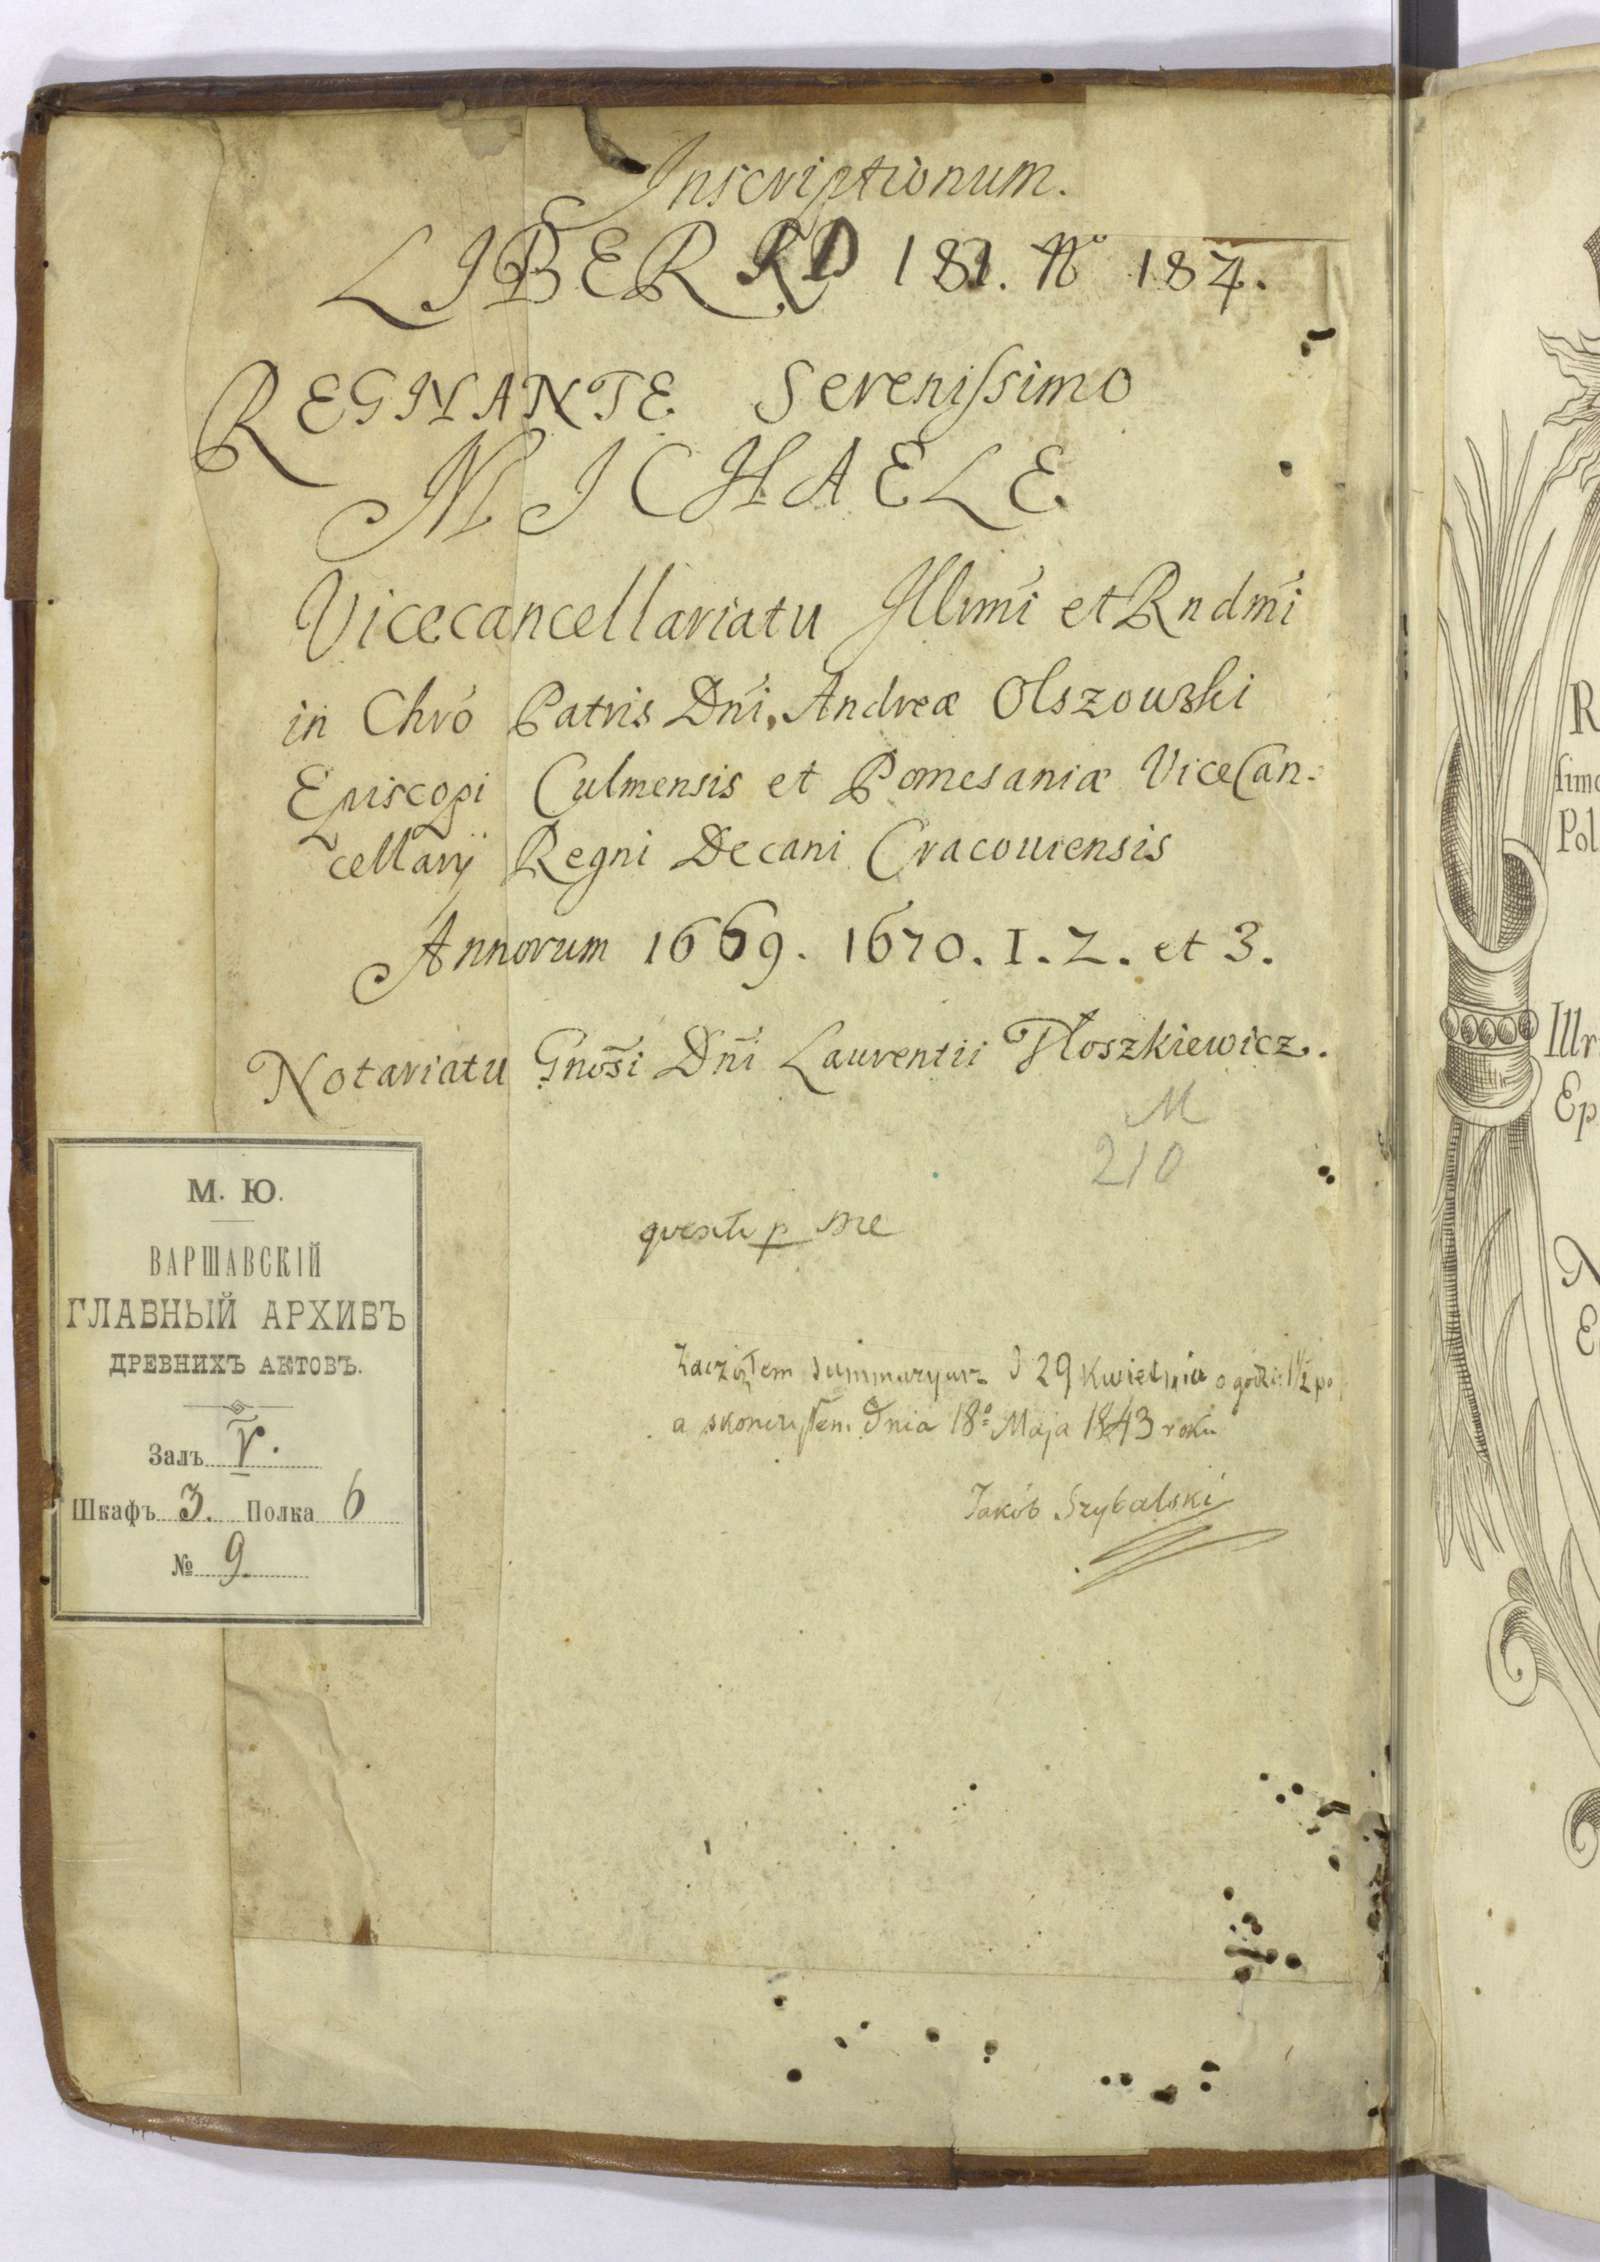 Inscriptionum.
LIBER RD 181. No 187.
REGNANTE Serenissimo
MICHAELE
Vicecancellariatu Illimi et Rndmi
in Chro Patris Dni, Andreæ Olszowski
Episcopi Culmensis et Pomesaniæ ViceCan-
cellarij Regni Decani Cracouiensis
Annorum 1669. 1670. I. 2. et 3.
Notariatu Gnosi Dni Laurentii Płoszkiewicz.
M
210
p me
Zacząłem summaryusz d 29 Kwietnia o godz: 1½ po
a skończyłem dnia 18o Maja 1843 roku
Jakób Szybalski
М. Ю.
ВАРШАВСКІЙ
ГЛАВНЫЙ АРХИВЪ
ДРЕВНИХЪ АКТОВЪ.
Залъ V.
Шкафъ 3. Полка 6
№ 9.
R
simo
Pol
Illr
Ep
N